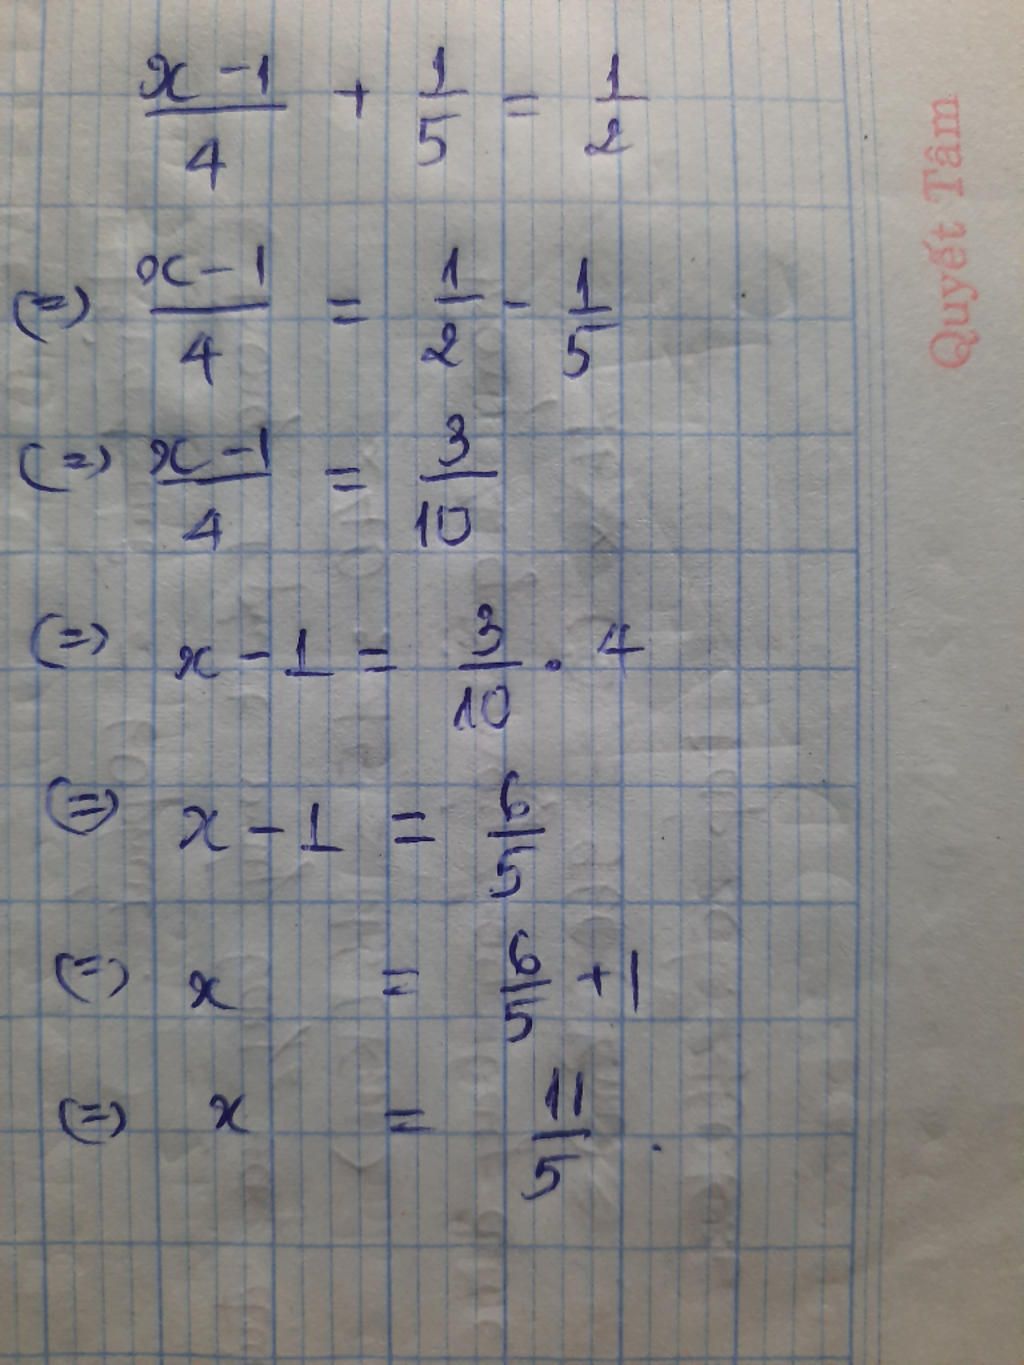 x-1/4 + 1/5 = 1/2
(=) x-1/4 = 1/2 - 1/5
(=) x-1/4 = 3/10
(=) x-1 = 3/10 . 4
(=) x-1 = 6/5
(=) x = 6/5 +1
(=) x = 11/5 .
Quyết Tâm